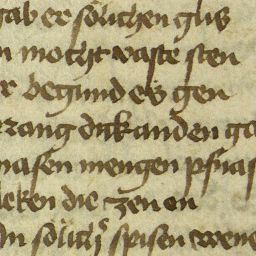 gab er sölichen glis
n mocht vaste sten
r begund es gen
rang dick an den ga
nasen mengen pfnas
lcken die zen en
in sölich spisen wene